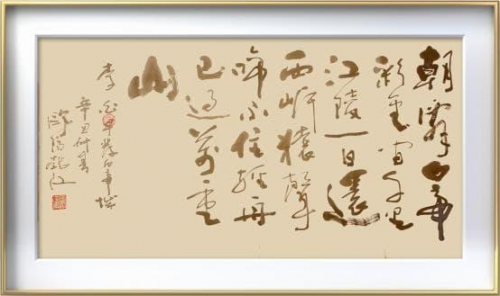 朝辭白帝
彩雲間千里
江陵一日還
兩岸猿聲
啼不住輕舟
已過萬重
山
李白早發白帝城
辛丑仲春